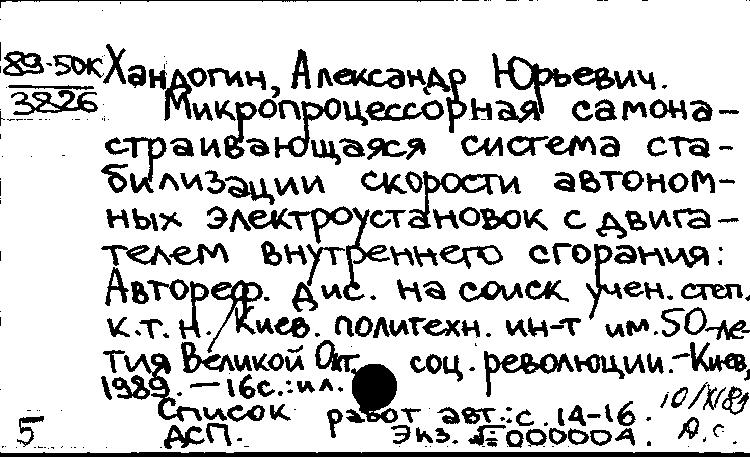 89-50к Хандогин, Александр Юрьевич.
3826 Микропроцессорная самона-
страивающаяся система ста-
билизации скорости автоном-
ных электроустановок с двига-
телем внутреннего сгорания:
Автореф. дис. на соиск учен. степ.
к.т.н. / Киев. политехн. ин-т им. 50-ле-
тия Великой Окт. соц. революции. - Киев,
1989. - 16с.: ил.
Список работ авт.: с. 14-16. 10/XI89
5 ДСП. Экз. № 000004. А.С.